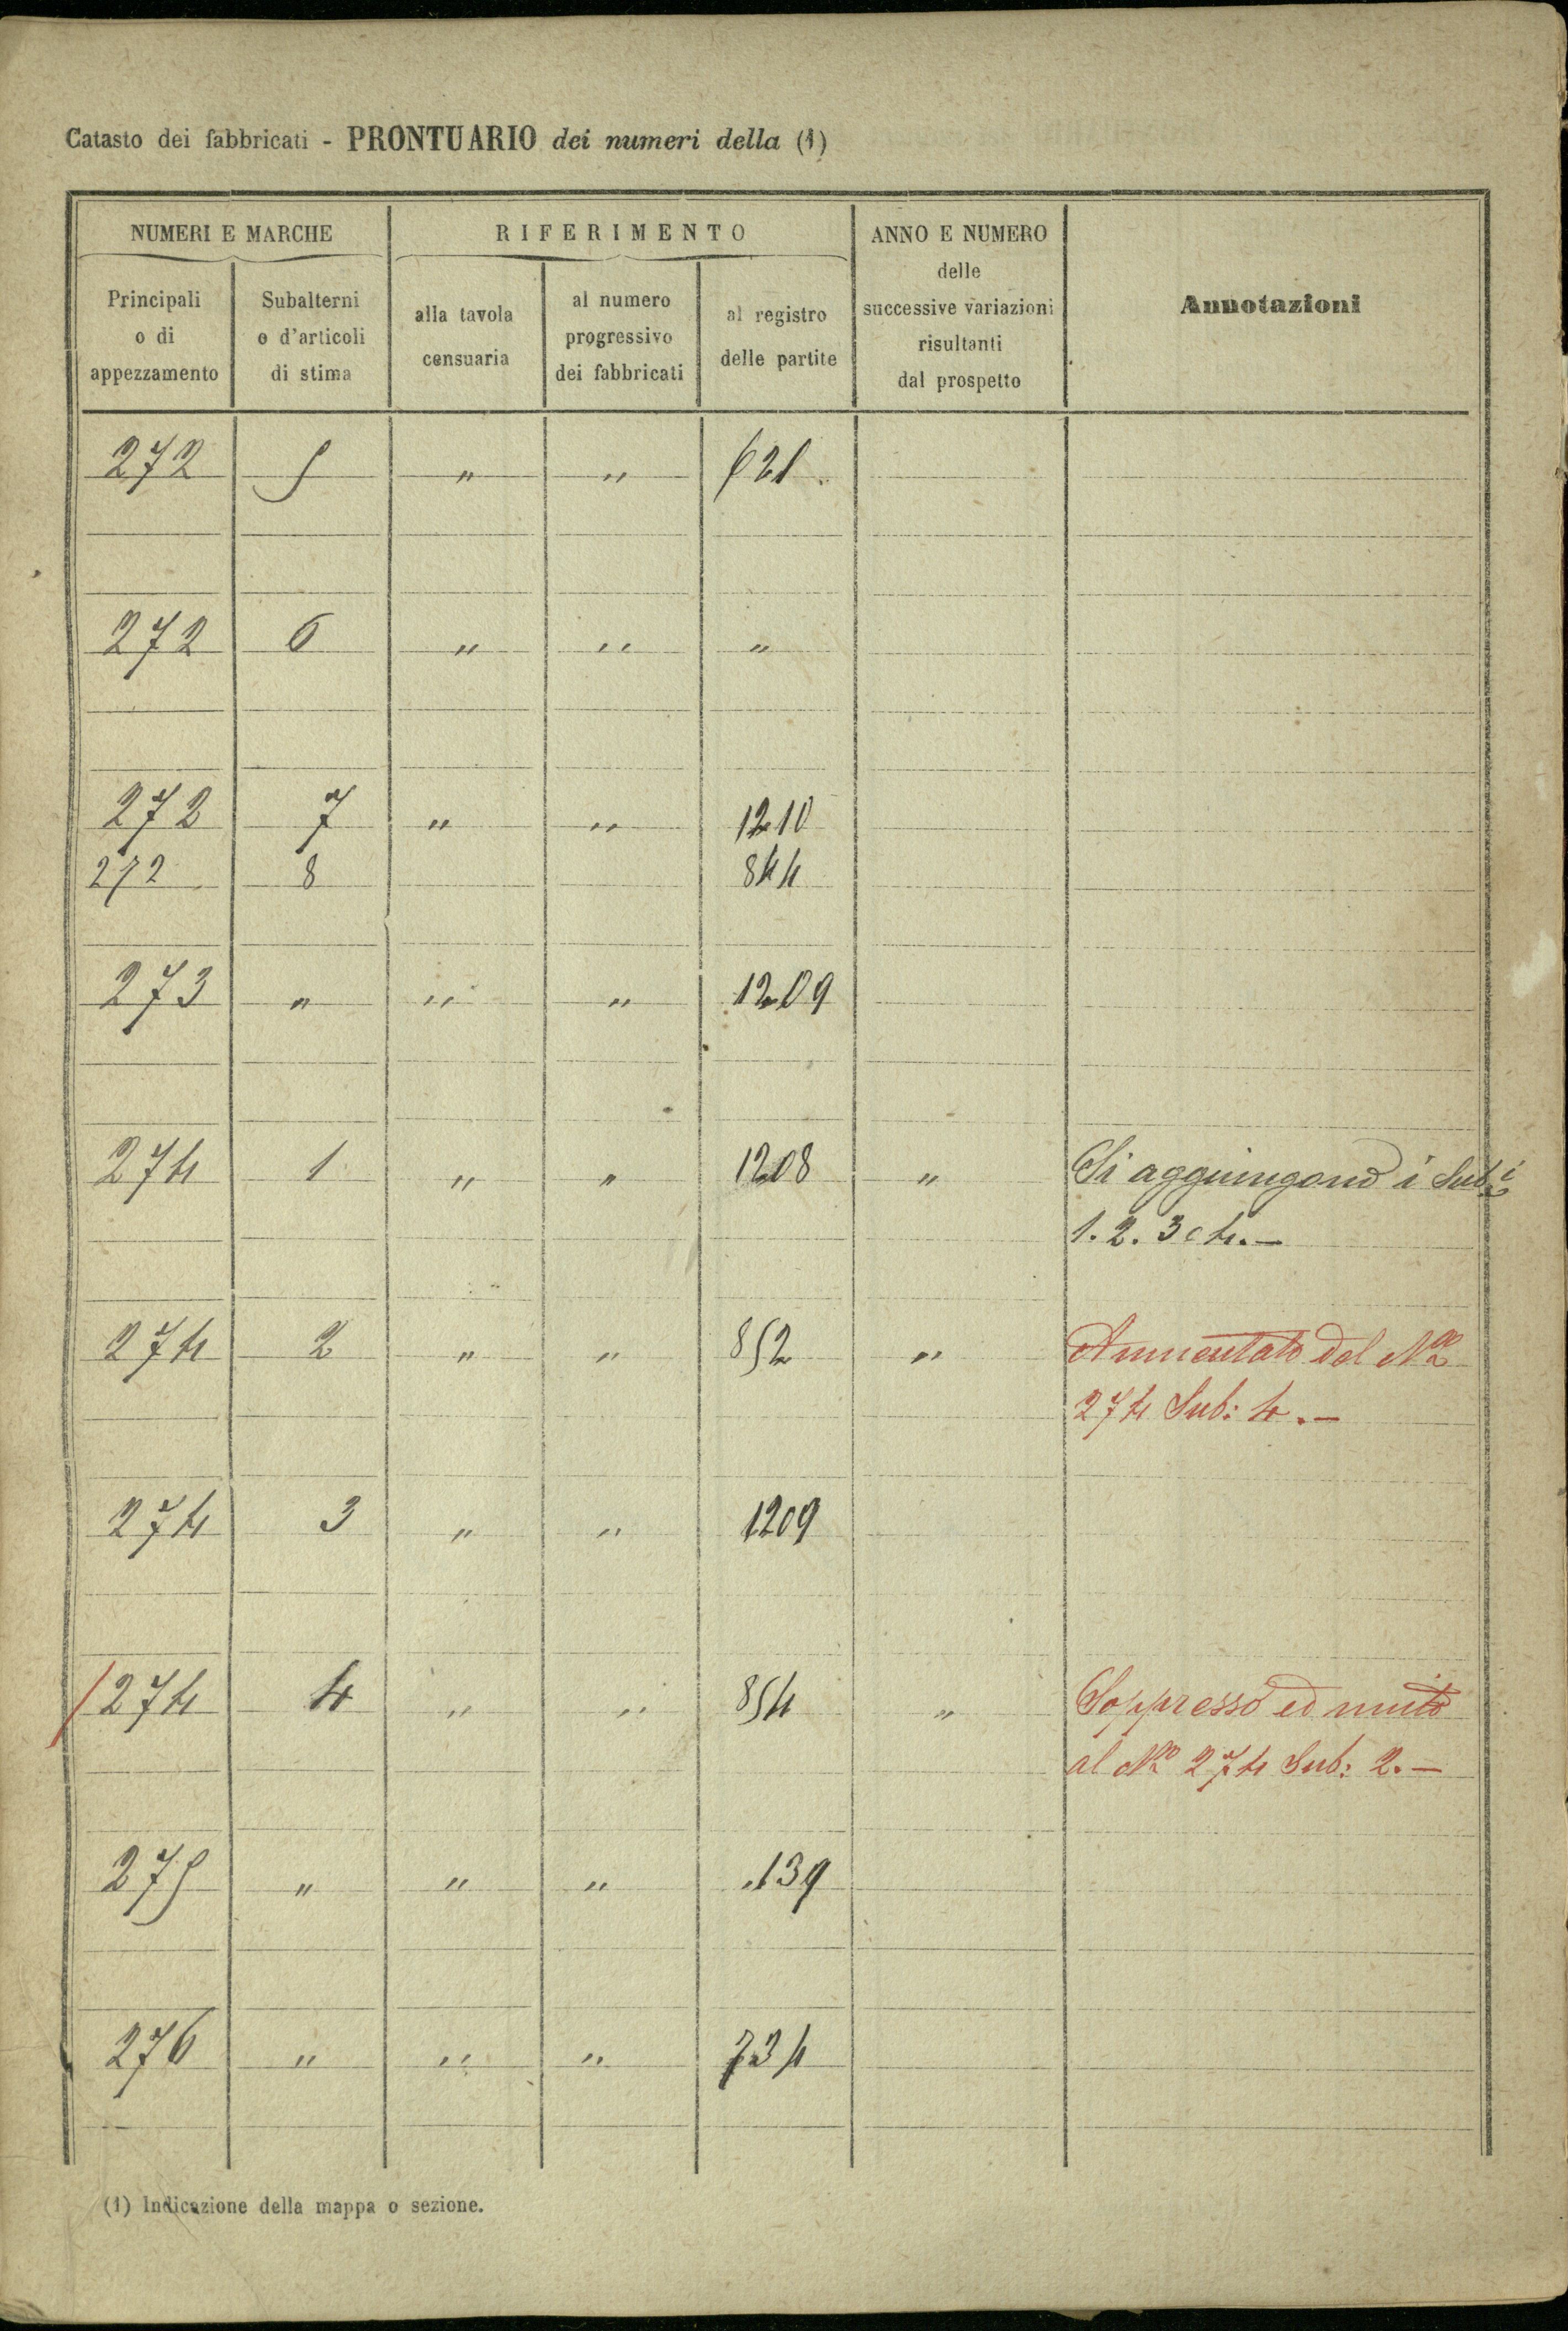 Catasto dei fabbricati - PRONTUARIO dei numeri della (1)
NUMERI E MARCHE
RIFERIMENTO
ANNO E NUMERO
delle
successive variazioni
risultanti
dal prospetto
Annotazioni
Principali
o di
appezzamento
Subalterni
o d'articoli
di stima
alla tavola
censuaria
al numero
progressivo
dei fabbricati
al registro
delle partite
272 5 " " 621
272 6 " " "
272 7 " " 1210
272 8 844
273 " " " 1209
274 1 " " 1208 " Si aggiungono i Sub.i
1. 2. 3 e 4. —
274 2 " " 852 " Aumentato del No
274 Sub: 4. —
274 3 " " 1209
274 4 " " 854 " Soppresso ed unito
al No 274 Sub: 2. —
275 " " " 139
276 " " " 734
(1) Indicazione della mappa o sezione.